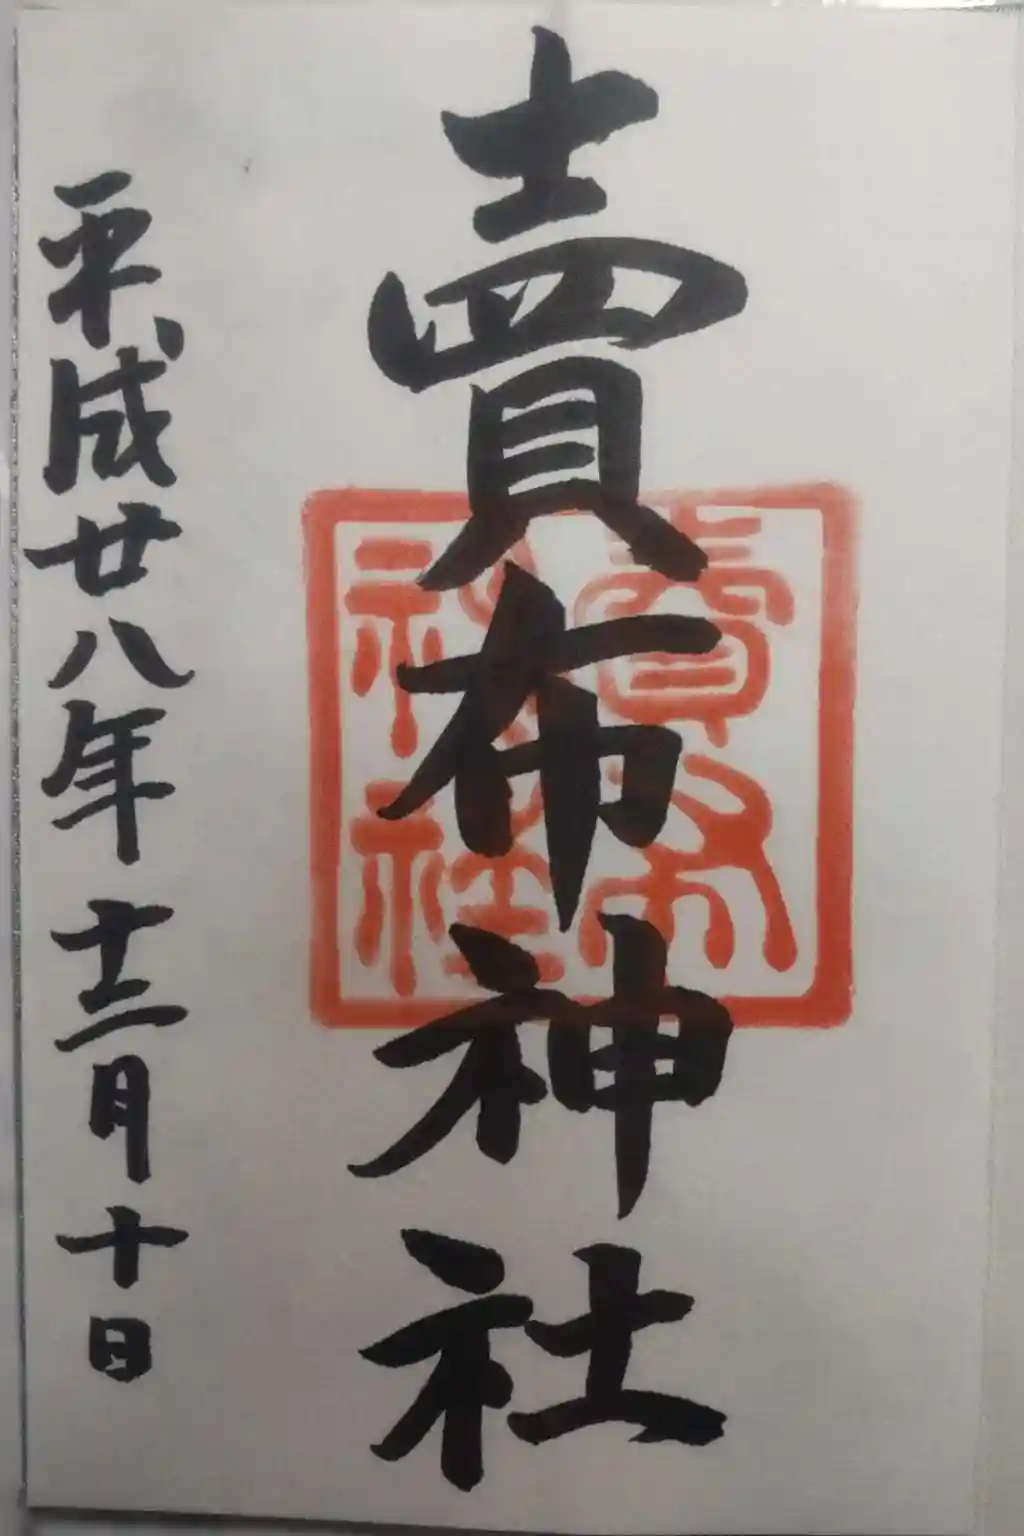 賣布神社
賣布神社
平成廿八年十二月十日